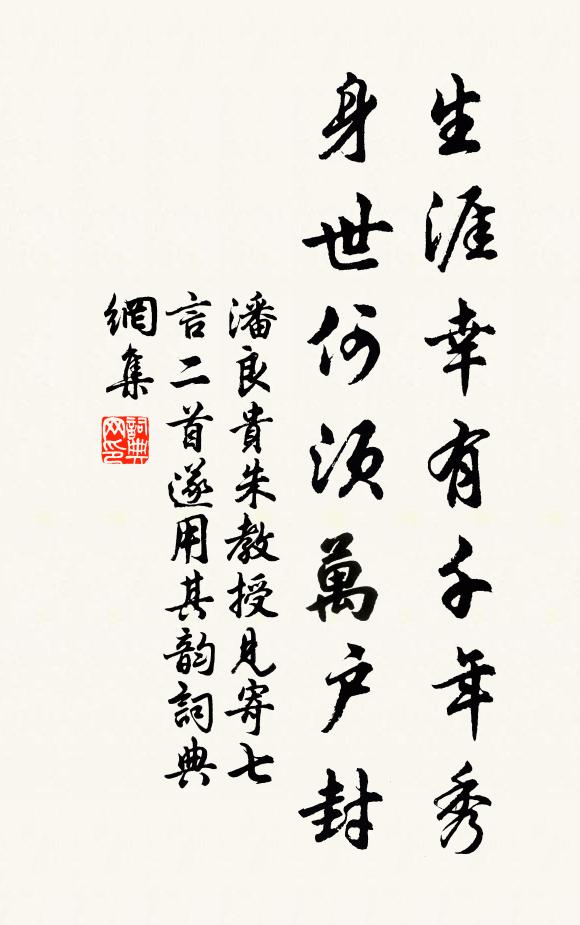 生涯幸有千年秀
身世何須萬户封
潘良貴朱教授見寄七
言二首遂用其韵詞典
網集
詞典網印